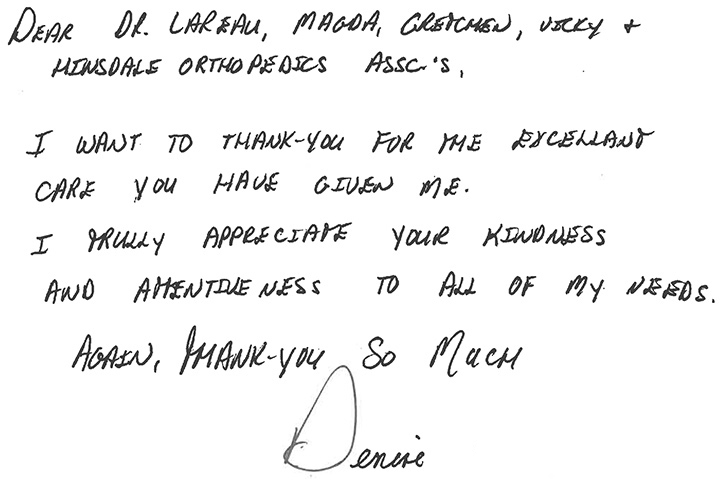 DEAR DR. LAREAU, MAGDA, GRETCHEN, VICKY +
HINSDALE ORTHOPEDICS ASSC.'S,
I WANT TO THANK-YOU FOR THE EXCELLANT
CARE YOU HAVE GIVEN ME.
I TRULLY APPRECIATE YOUR KINDNESS
AND ATTENTIVENESS TO ALL OF MY NEEDS.
AGAIN, THANK-YOU SO MUCH
Denise